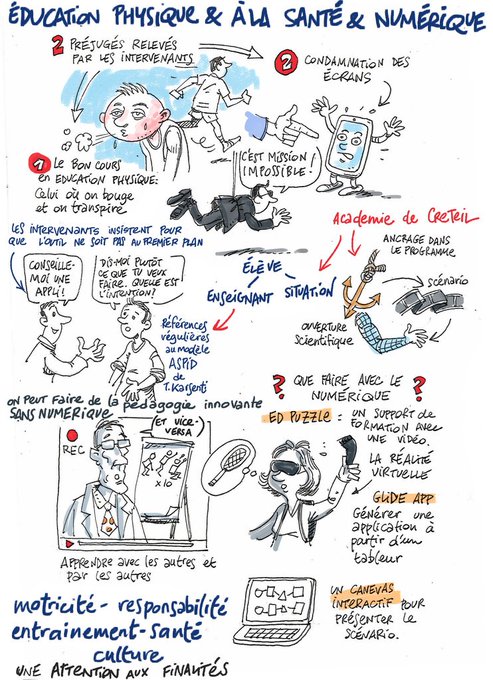 ÉDUCATION PHYSIQUE & À LA SANTÉ & NUMÉRIQUE
2 PRÉJUGÉS RELEVÉS
PAR LES INTERVENANTS
2 CONDAMNATION DES
ÉCRANS
1 LE BON COURS
EN EDUCATION PHYSIQUE:
Celui où on bouge
et on transpire
C'EST MISSION
IMPOSSIBLE!
LES INTERVENANTS INSISTENT POUR
QUE L'OUTIL NE SOIT PAS AU PREMIER PLAN
CONSEILLE-
MOI UNE
APPLI!
DIS-MOI PLUTÔT
CE QUE TU VEUX
FAIRE. QUELLE EST
L'INTENTION?
ÉLÈVE
ENSEIGNANT SITUATION
Références
régulières
au modèle
ASPID
de
T. Karsenti
Academie de CRETEIL
ANCRAGE DANS
LE PROGRAMME
scénario
OUVERTURE
Scientifique
ON PEUT FAIRE de la pédagogie innovante
SANS NUMÉRIQUE
ET VICE-
VERSA
REC
x10
APPRENDRE AVEC LES AUTRES ET
PAR LES AUTRES
? QUE FAIRE AVEC LE ?
NUMÉRIQUE
ED PUZZLE : UN SUPPORT DE
FORMATION AVEC
UNE VIDÉO.
LA RÉALITÉ
VIRTUELLE
GLIDE APP
Générer une
application à
partir d'un
tableur
UN CANEVAS
INTERACTIF POUR
PRÉSENTER LE
SCÉNARIO.
motricité - responsabilité
entrainement - santé
culture
UNE ATTENTION AUX FINALITÉS